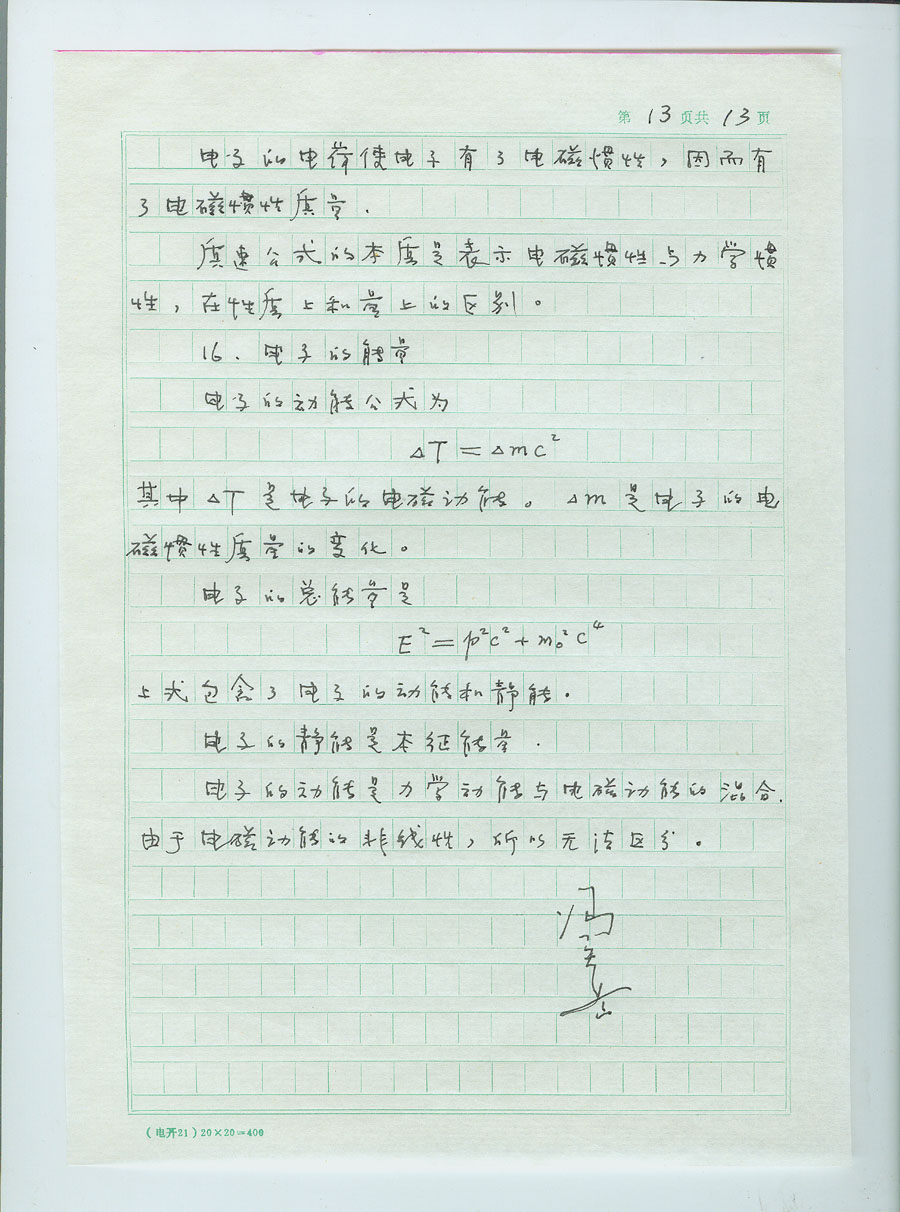 第 13 页共 13 页
电子的电荷使电子有了电磁惯性,因而有
了电磁惯性质量.
质速公式的本质是表示电磁惯性与力学惯
性,在性质上和量上的区别。
16.电子的能量
电子的动能公式为
ΔT = Δmc²
其中ΔT是电子的电磁动能。Δm是电子的电
磁惯性质量的变化。
电子的总能量是
E² = p²c² + m₀²c⁴
上式包含了电子的动能和静能.
电子的静能是本征能量.
电子的动能是力学动能与电磁动能的混合.
由于电磁动能的非线性,所以无法区分。
冯
(电开21)20×20=400